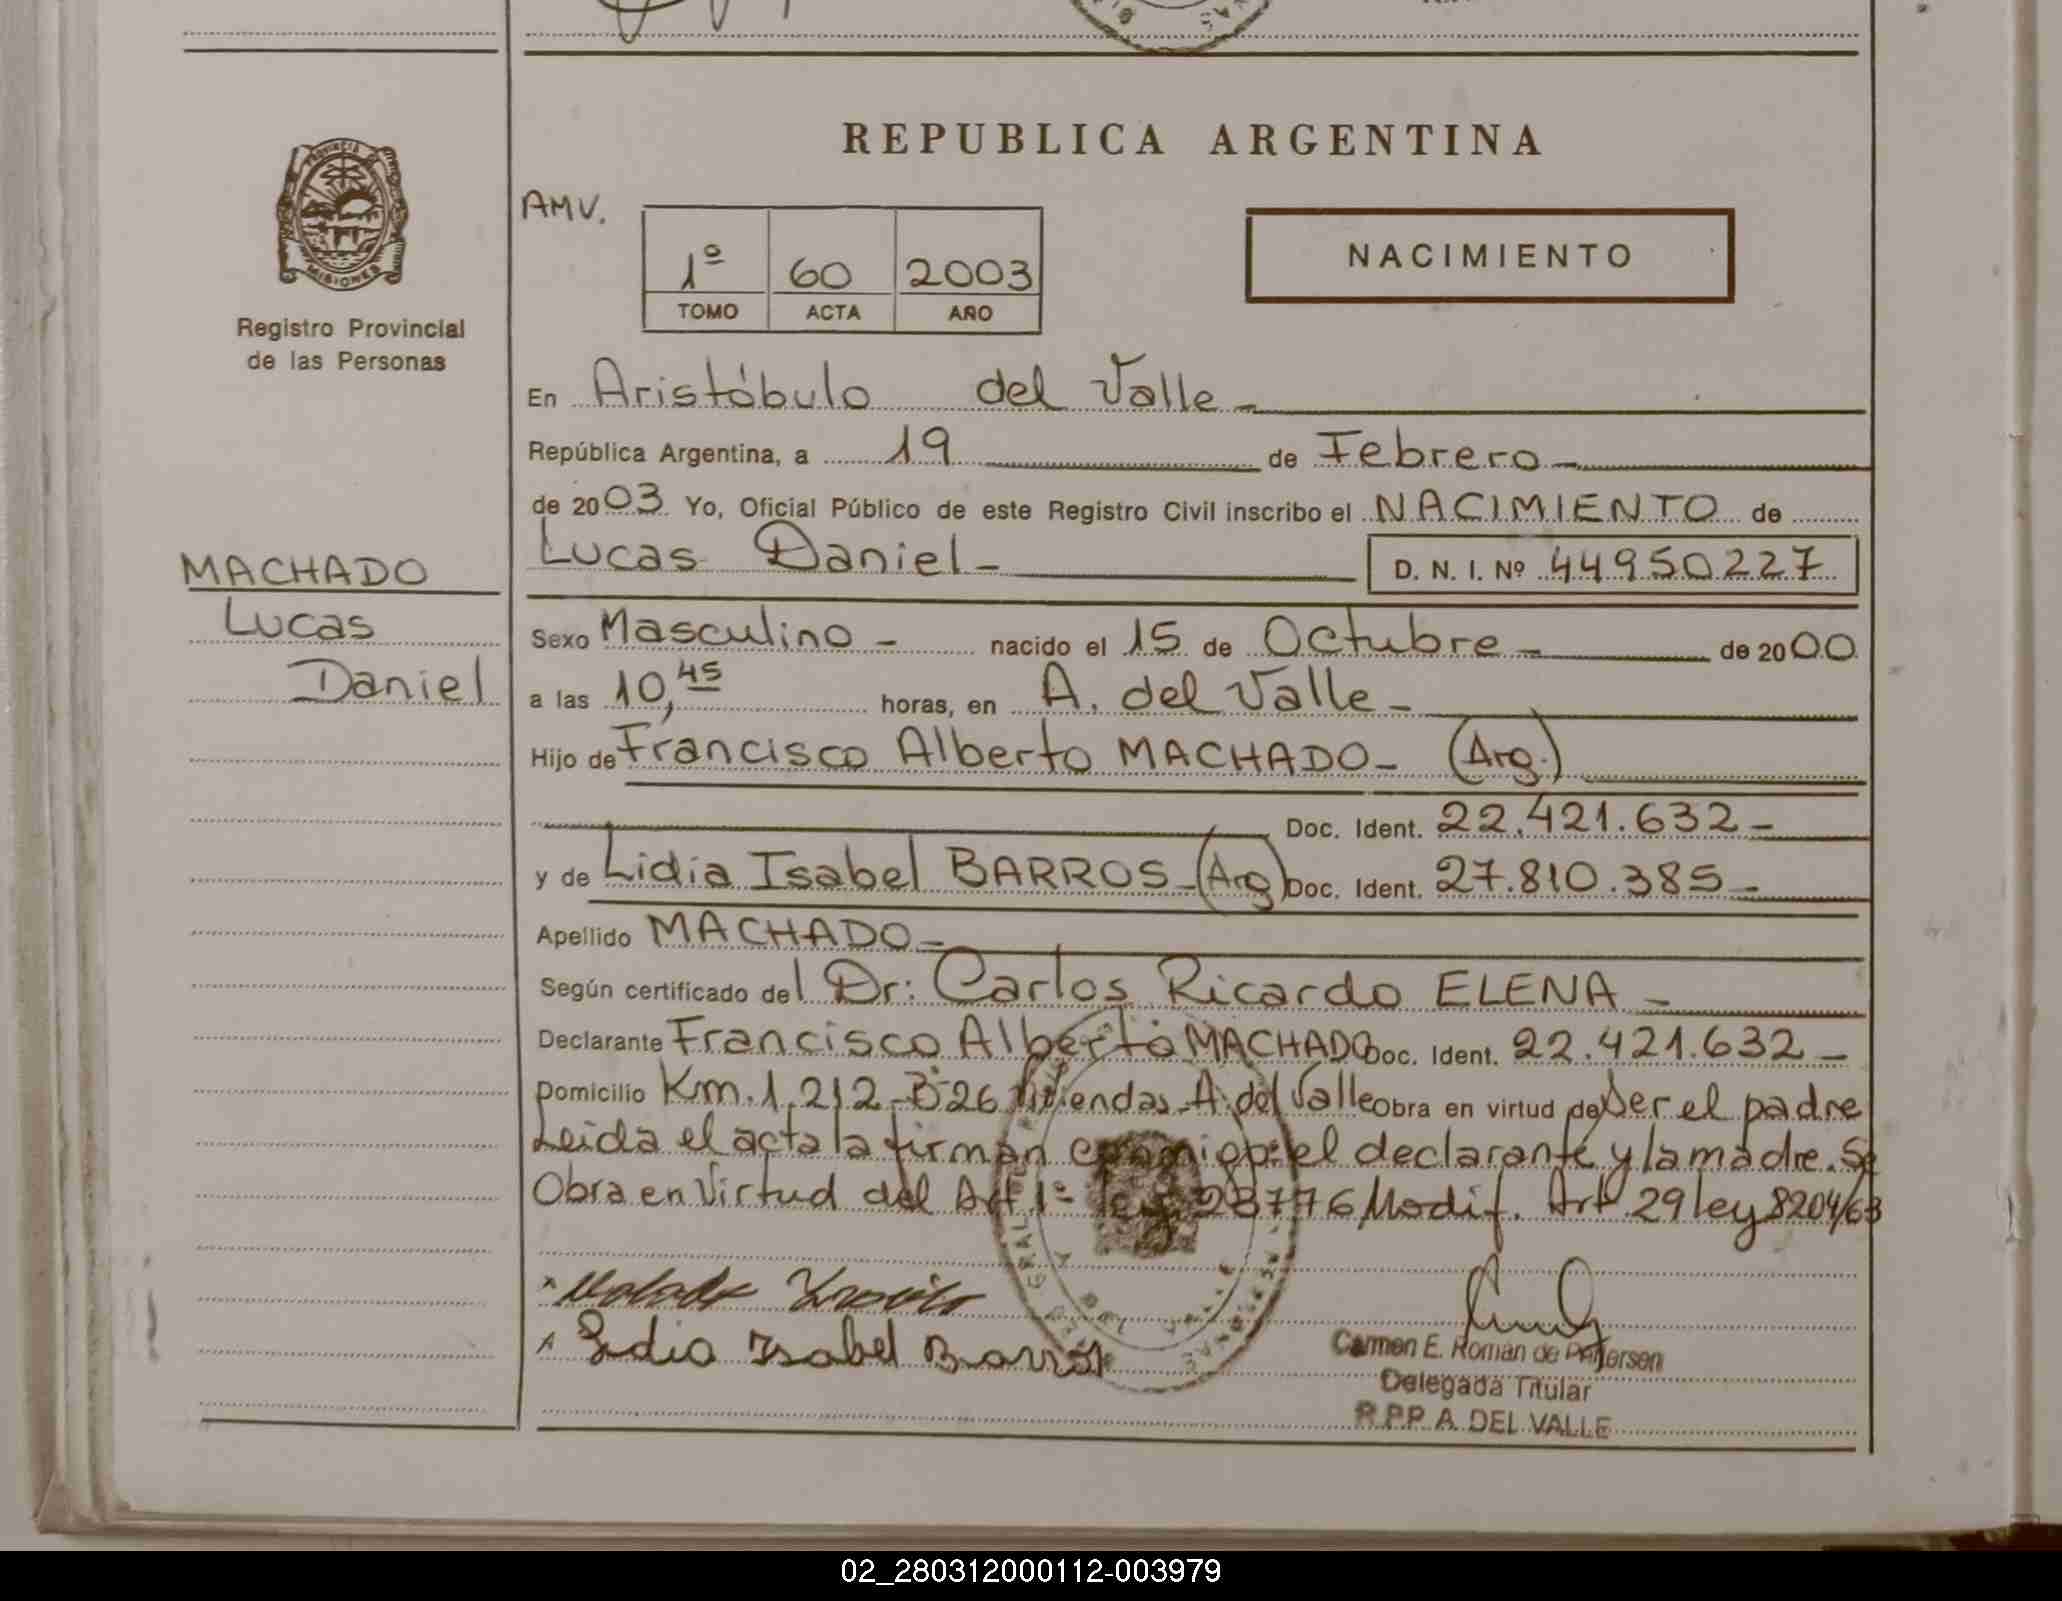 REPUBLICA ARGENTINA
PROVINCIA DE
MISIONES
Registro Provincial
de las Personas
AMV.
1º 60 2003
TOMO ACTA AÑO
NACIMIENTO
En Aristóbulo del Valle -
República Argentina, a 19 de Febrero -
de 2003 Yo, Oficial Público de este Registro Civil inscribo el NACIMIENTO de
Lucas Daniel - D. N. I. Nº 44950227
MACHADO
Lucas
Daniel
Sexo Masculino - nacido el 15 de Octubre - de 2000
a las 10,45 horas, en A. del Valle -
Hijo de Francisco Alberto MACHADO - (Arg.)
Doc. Ident. 22.421.632 -
y de Lidia Isabel BARROS - (Arg) Doc. Ident. 27.810.385 -
Apellido MACHADO -
Según certificado del Dr: Carlos Ricardo ELENA -
Declarante Francisco Alberto MACHADO Doc. Ident. 22.421.632 -
Domicilio Km. 1.212 - Bº 26 Viviendas - A. del Valle Obra en virtud de Ser el padre
Leida el acta la firman conmigo: el declarante y la madre. Se
Obra en Virtud del Art 1º ley 23776 Modif. Art 29 ley 8204/63
Lidia Isabel Barros
Carmen E. Román de
Delegada Titular
R.P.P. A. DEL VALLE
02_280312000112-003979